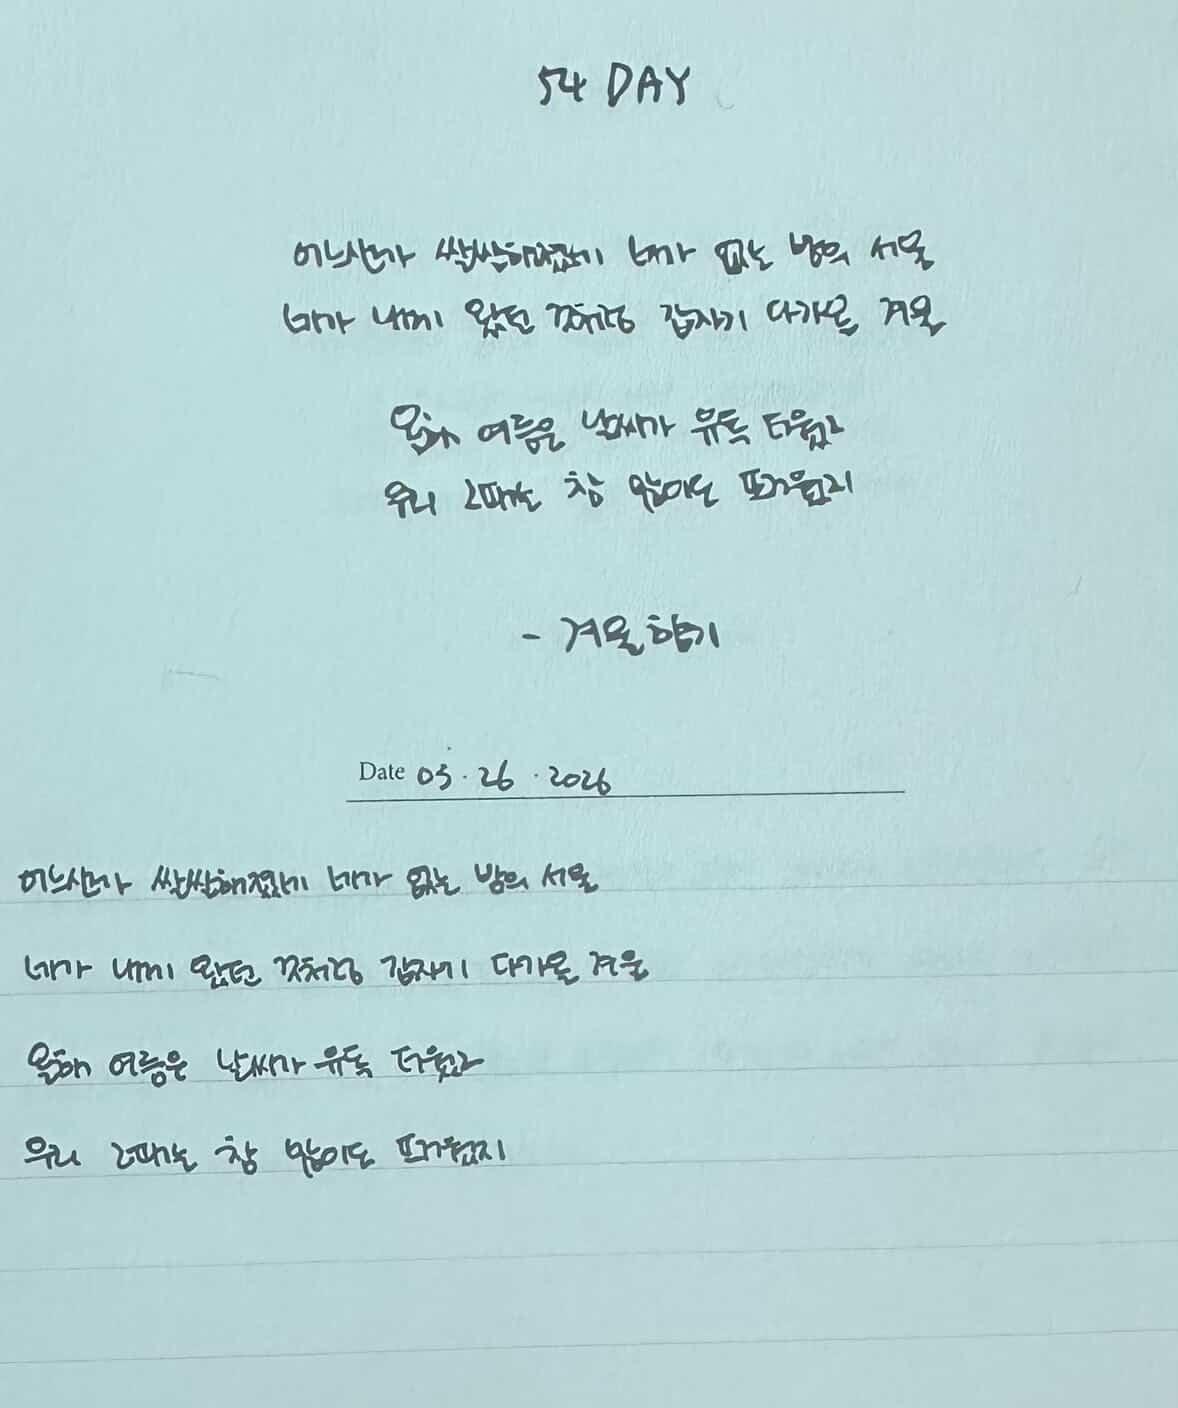 54 DAY
어느샌가 쌀쌀해졌네 네가 없는 밤의 서울
네가 내게 왔던 것처럼 갑자기 다가온 겨울
올해 여름은 날씨가 유독 더웠고
우리 그때는 참 많이도 뜨거웠지
- 겨울향기
Date 05.26.2026
어느샌가 쌀쌀해졌네 네가 없는 밤의 서울
네가 내게 왔던 것처럼 갑자기 다가온 겨울
올해 여름은 날씨가 유독 더웠고
우리 그때는 참 많이도 뜨거웠지